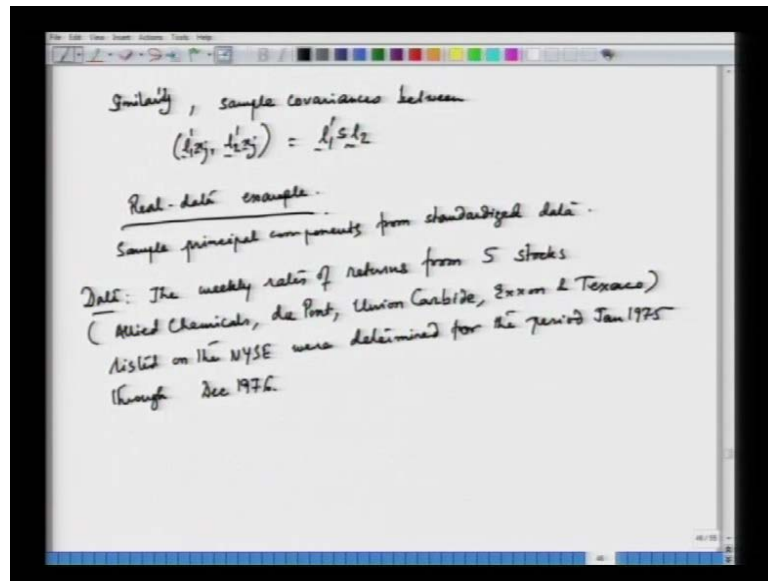 File Edit View Insert Actions Tools Help
Similarly, sample covariances between
(l₁'xj, l₂'xj) = l₁'S l₂
Real-data example.
Sample principal components from standardized data.
Data: The weekly rates of returns from 5 stocks
(Allied Chemicals, du Pont, Union Carbide, Exxon & Texaco)
listed on the NYSE were determined for the period Jan 1975
through Dec 1976.